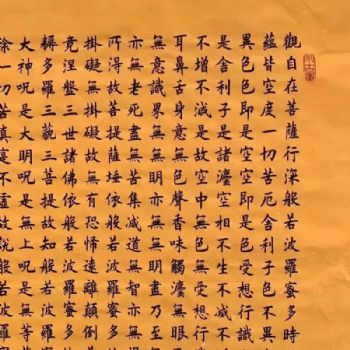 觀自在菩薩行深般若波羅蜜多時
蘊皆空度一切苦厄舍利子色不異
異色色即是空空即是色受想行識
是舍利子是諸灋空相不生不滅不
不增不減是故空中無色無受想行
耳鼻舌身意無色聲香味觸灋無眼
無意識界無無明亦無無明盡乃至
亦無老死盡無苦集滅道無智亦無
所得故菩提薩埵依般若波羅蜜多
掛礙無掛礙故無有恐怖遠離顛倒
竟涅槃三世諸佛依般若波羅蜜多
耨多羅三藐三菩提故知般若波羅
大神呪是大明呪是無上呪是無等
除一切苦真實不虛故說般若波羅